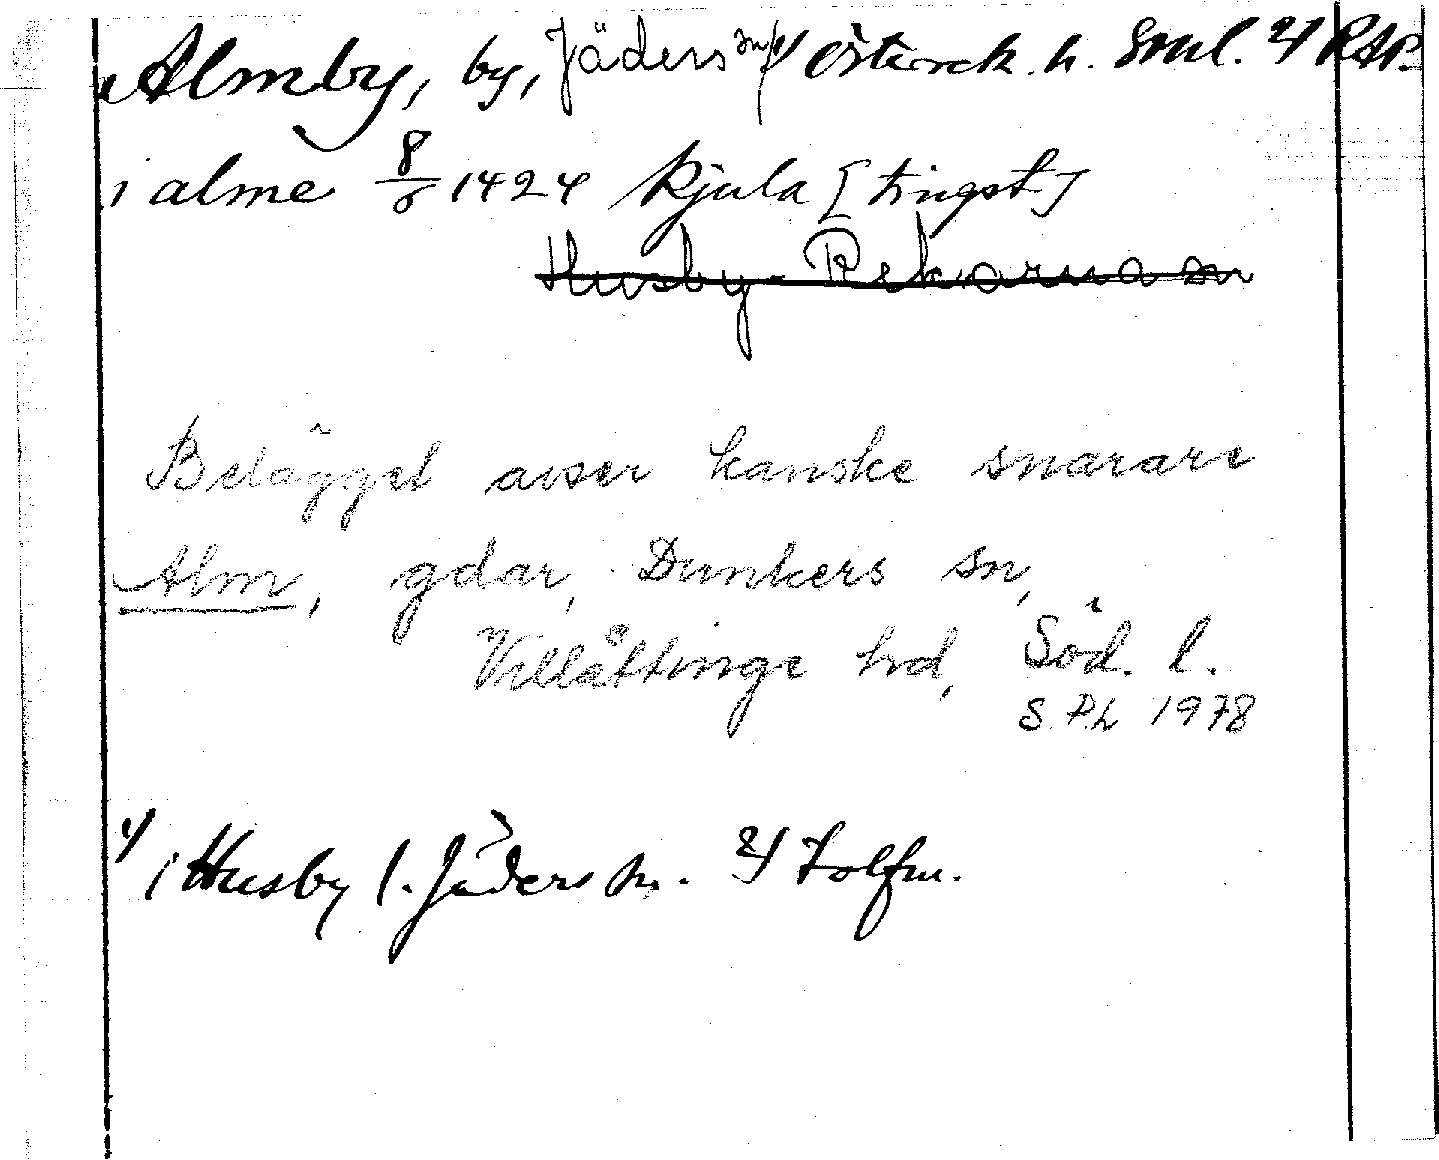 Almby, by, Jäders sn 1/ Österrek. h. Sml. 2/ RAP
i alme 8/6 1424 Kjula [tingst]
Husby-Rekarna sn
Belägget avser kanske snarare
Alm, gdar, Dunkers sn,
Villåttinge hd, Söd. l.
S.Ph 1978
1/ i Husby l. Jäders sn. 2/ Tolfm.